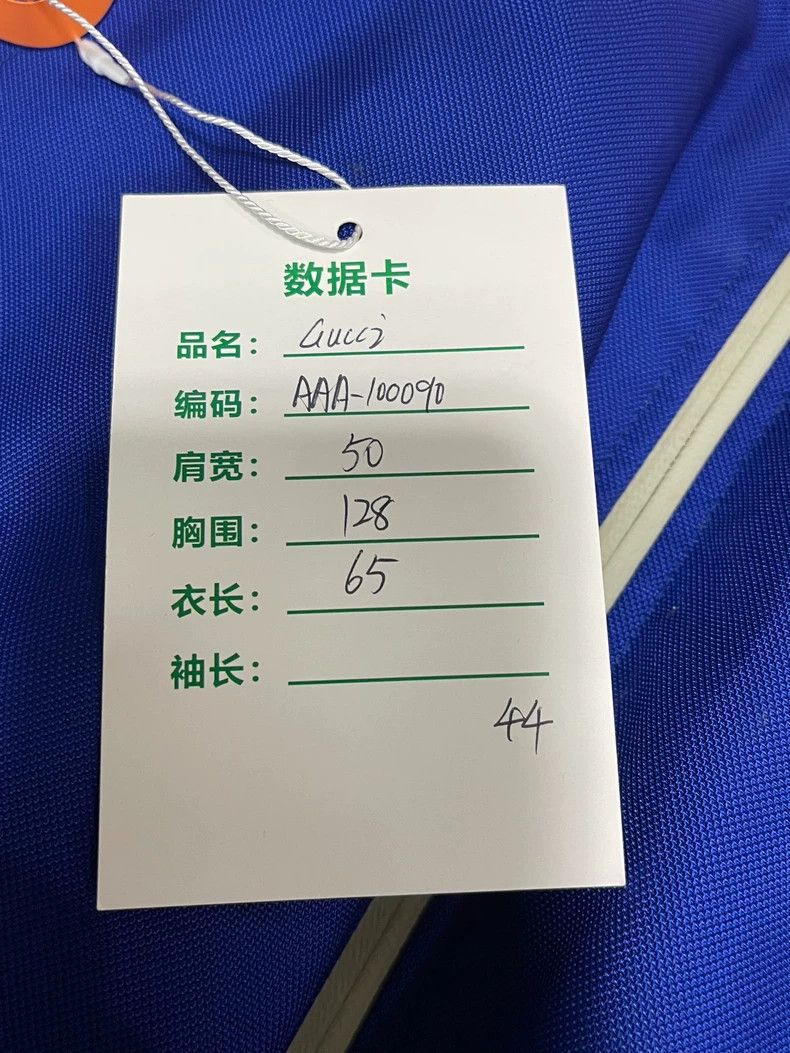 数据卡
品名： Gucci
编码： AAA-100090
肩宽： 50
胸围： 128
衣长： 65
袖长：
44